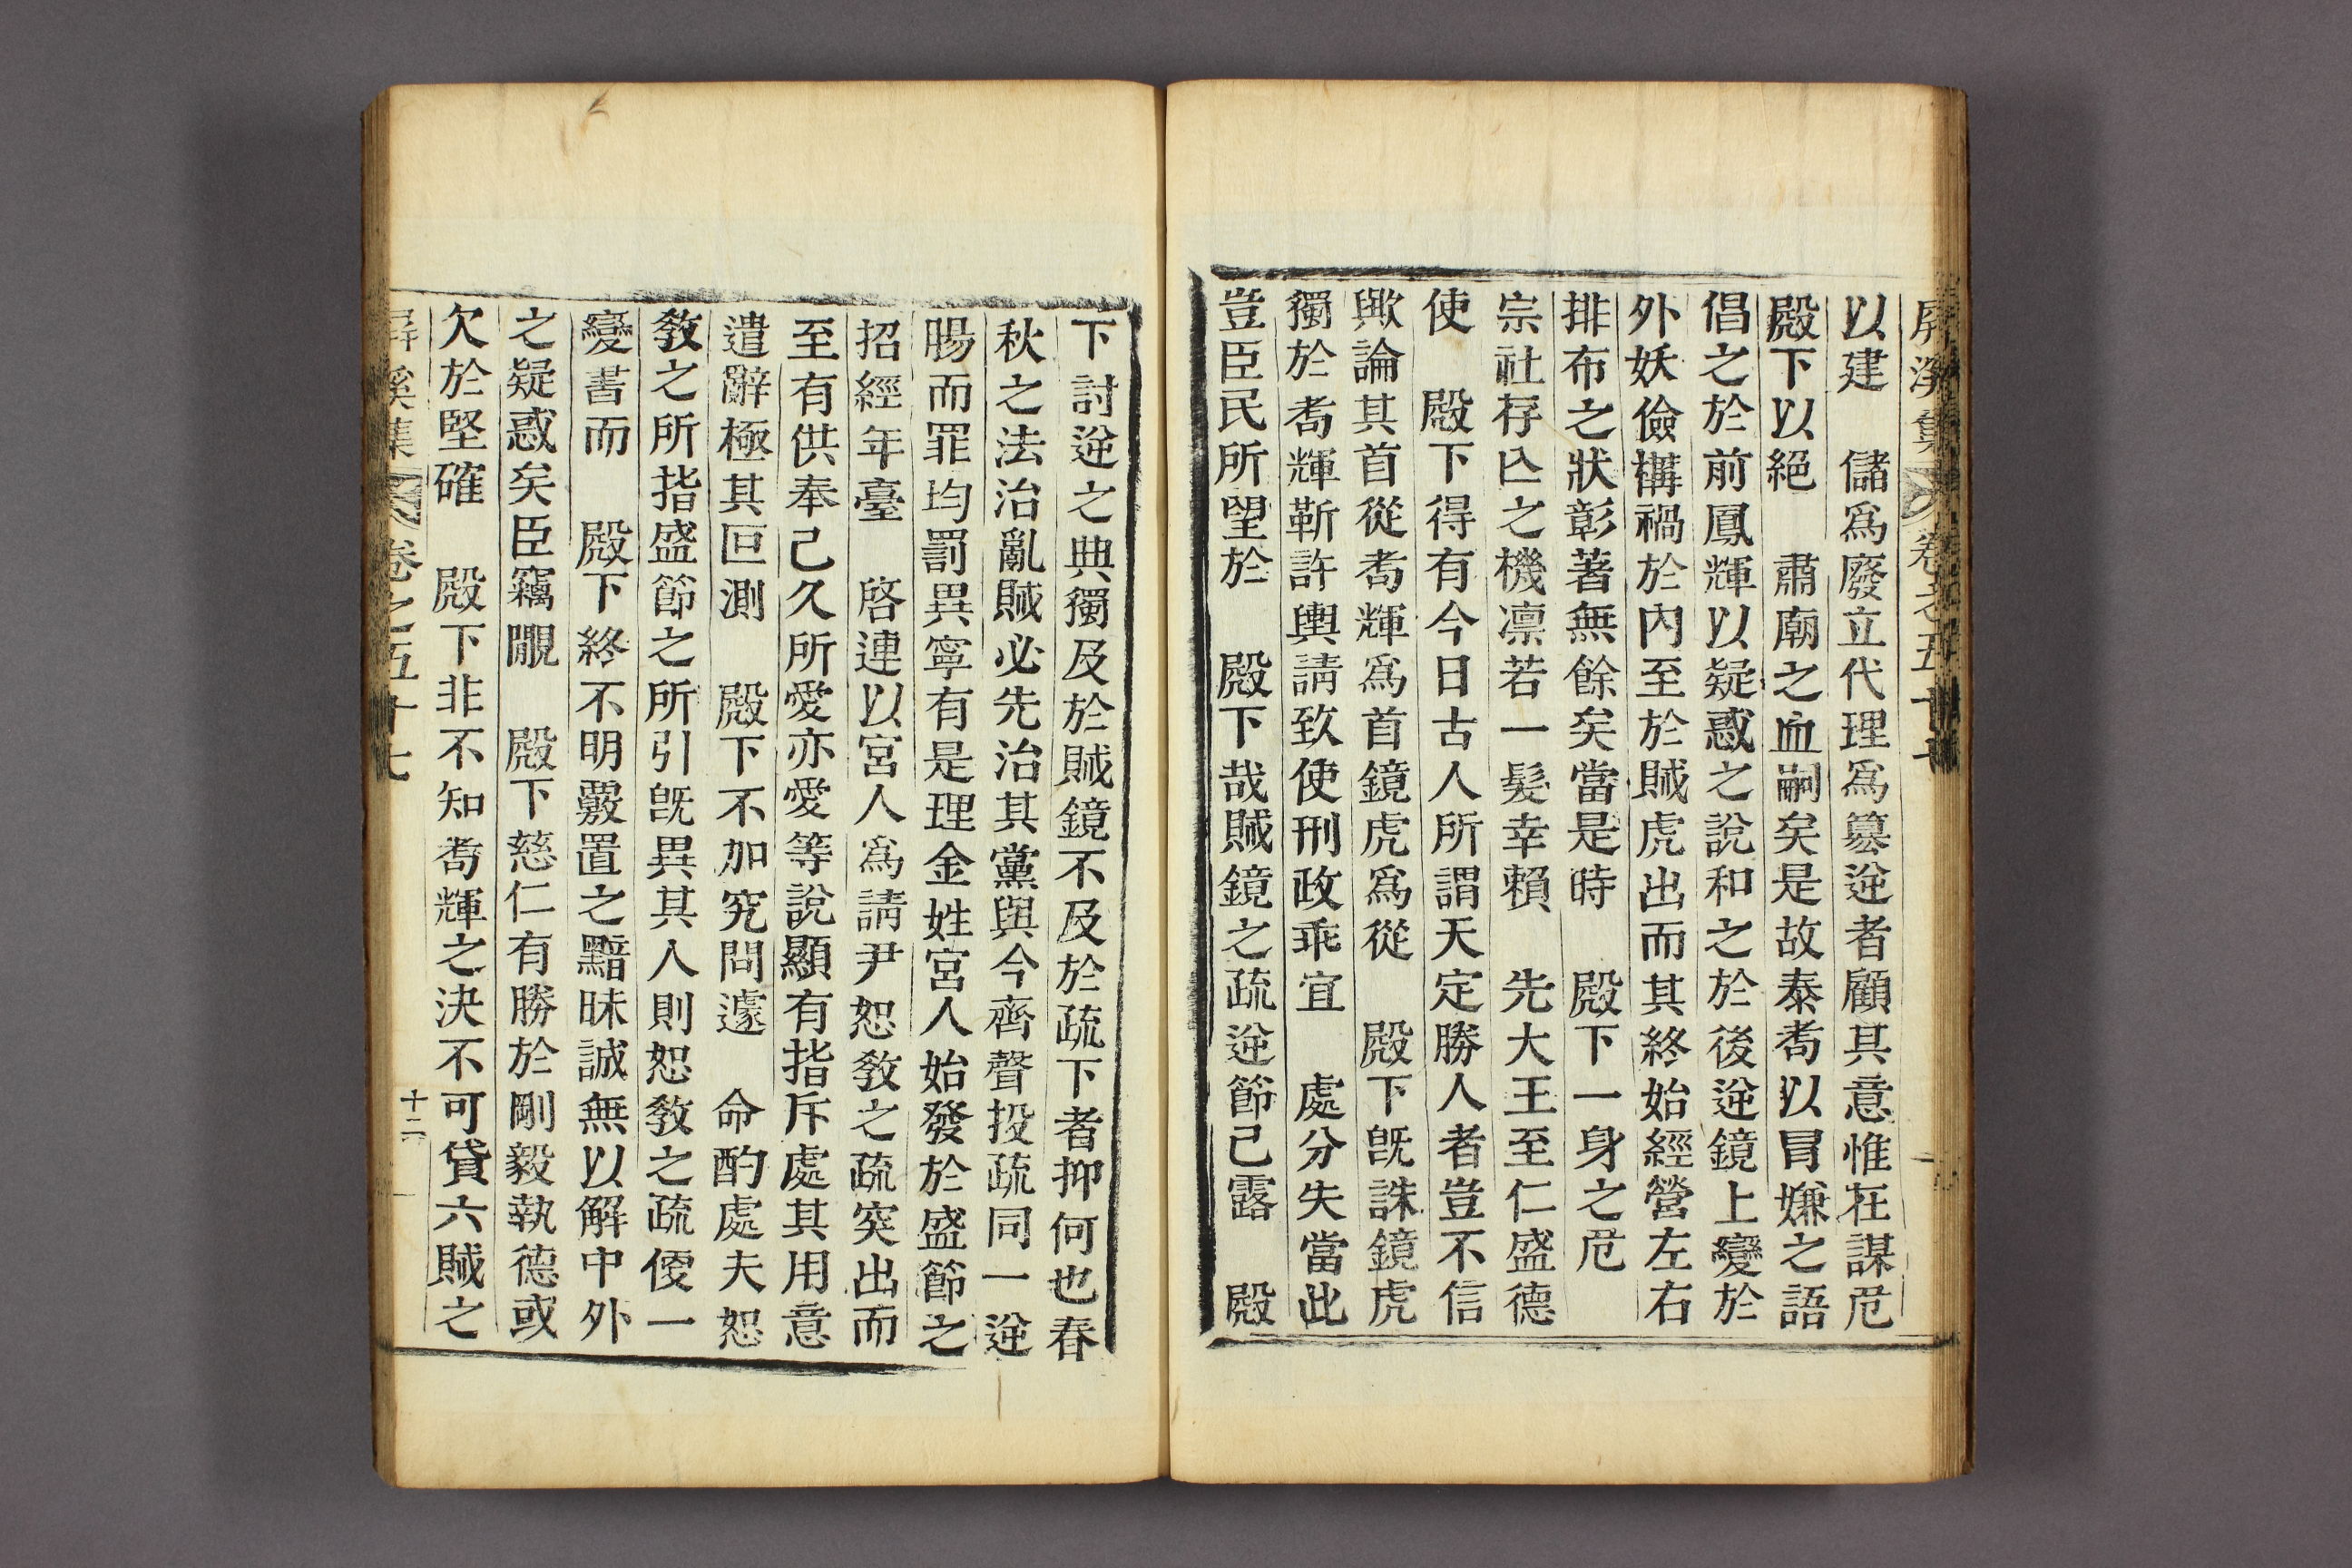 屛溪集 卷之五十七
以建 儲爲廢立代理爲簒逆者顧其意惟在謀危
殿下以絕 肅廟之血嗣矣是故泰耉以冒嫌之語
倡之於前鳳輝以疑惑之說和之於後逆鏡上變於
外妖儉構禍於內至於賊虎出而其終始經營左右
排布之狀彰著無餘矣當是時 殿下一身之危
宗社存亾之機凛若一髮幸賴 先大王至仁盛德
使 殿下得有今日古人所謂天定勝人者豈不信
歟論其首從耉輝爲首鏡虎爲從 殿下旣誅鏡虎
獨於耉輝靳許輿請致使刑政乖宜 處分失當此
豈臣民所望於 殿下哉賊鏡之疏逆節已露 殿
下討逆之典獨及於賊鏡不及於疏下者抑何也春
秋之法治亂賊必先治其黨與今齊聲投疏同一逆
腸而罪均罰異寧有是理金姓宮人始發於盛節之
招經年臺 啓連以宮人爲請尹恕敎之疏突出而
至有供奉已久所愛亦愛等說顯有指斥處其用意
遣辭極其叵測 殿下不加究問遽 命酌處夫恕
敎之所指盛節之所引旣異其人則恕敎之疏便一
變書而 殿下終不明覈置之黯昧誠無以解中外
之疑惑矣臣竊覵 殿下慈仁有勝於剛毅執德或
欠於堅確 殿下非不知耉輝之決不可貸六賊之
屛溪集 卷之五十七 十二